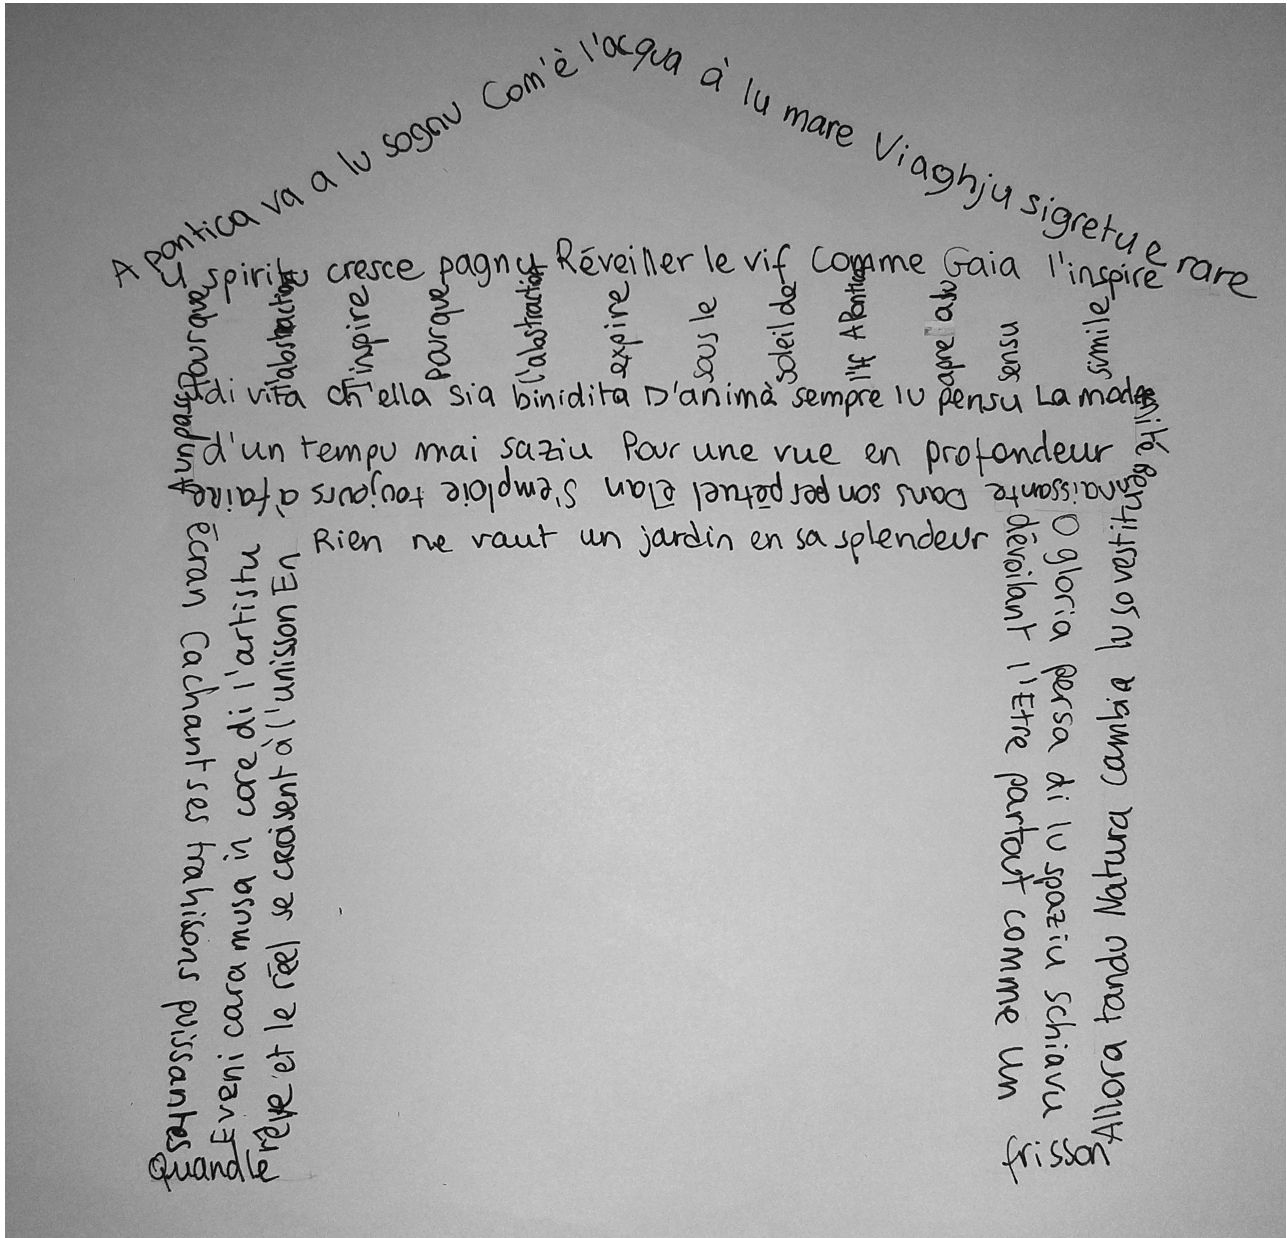 A Pontica va a lu sognu Com'è l'acqua à lu mare Viaghju sigretu e rare
U spiritu cresce pagnu Réveiller le vif Comme Gaia l'inspire
l'abstraction
inspire
parque
l'abstraction
expire
sous le
soleil de
l'if A Pontica
apre a lu
sensu
simile
di vita ch'ella sia binidita D'animà sempre lu pensu La modernité
d'un tempu mai saziu Pour une vue en profondeur
Dans son perpétuel élan s'emploie toujours à faire
Rien ne vaut un jardin en sa splendeur
écran Cachant ses trahisons puissantes
E veni cara musa in core di l'artistu
Quand le
rêve et le réel se croisent à l'unisson En
dévoilant l'Etre partout comme un
frisson
O gloria persa di lu spaziu schiavu
Allora tandu Natura cambia lu so vestitu